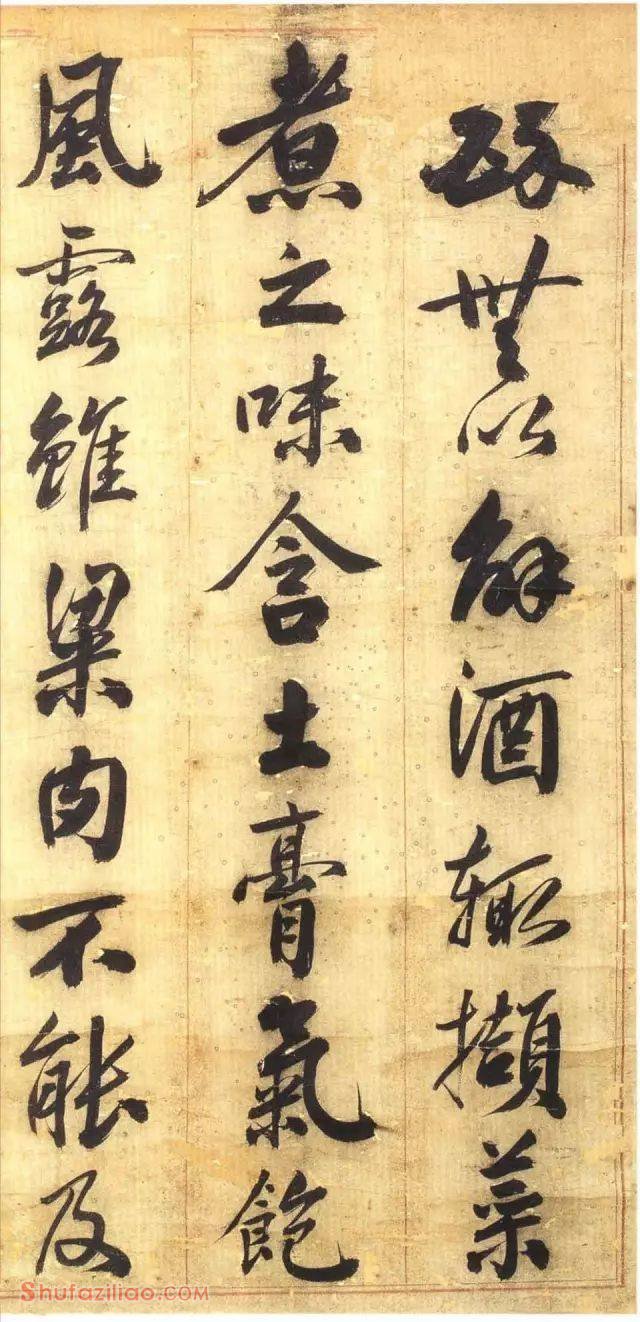 無以解酒輒擷菜
煮之味含土膏氣飽
風露雖粱肉不能及
Shufaziliao.com